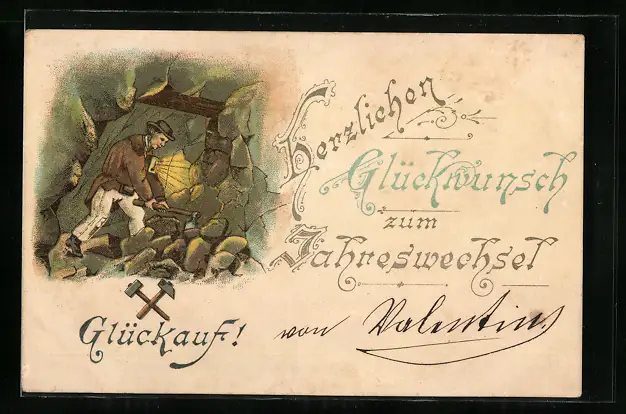 Herzlichen
Glückwunsch
zum
Jahreswechsel
Glückauf!
von Valentin